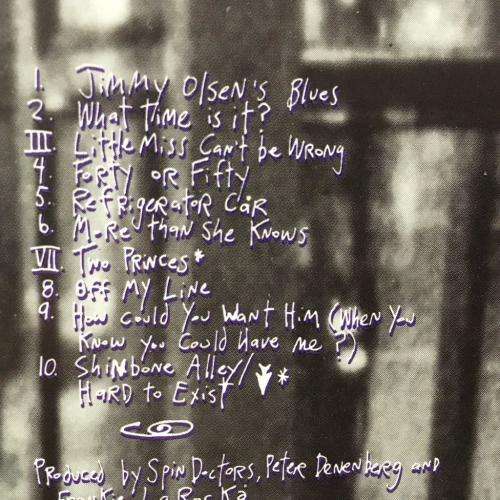 1. Jimmy Olsen's Blues
2. What time is it?
III. Little Miss Can't be Wrong
4. Forty or Fifty
5. Refrigerator Car
6. More than She Knows
VII. Two Princes*
8. Off My Line
9. How could You Want Him (When You
Know you Could Have me ?)
10. Shinbone Alley/
Hard to Exist *
Produced by Spin Doctors, Peter Denenberg and
Frankie La Rocka